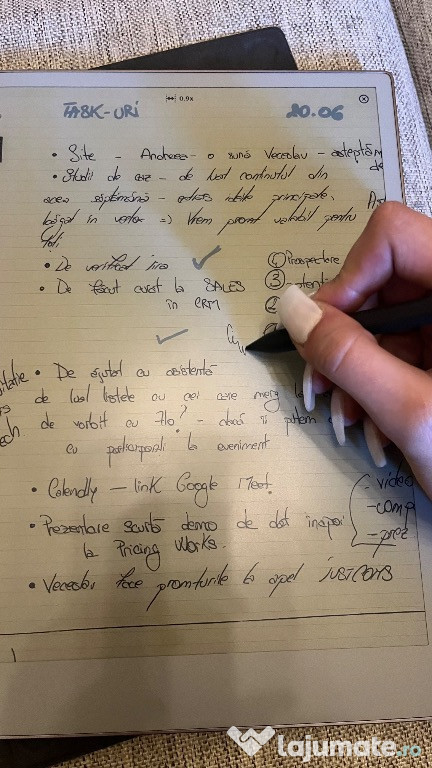 0.9x
TASK-URI 20.06
• Site - Andreea - o sună Veceslav - așteptăm
• Studii de caz - de luat conținutul din de
acea săptămână - extras ideile principale,
băgat în => Vrem promt valabil pentru
toți
• De verificat
• De făcut curat la SALES
în CRM
① Prospectare
③
②
• De ajutat cu asistentă
de luat listele cu cei care merg la
de vorbit cu Flo? - dacă și putem
cu participanții la eveniment
• Calendly - link Google Meet.
• Prezentare scurtă demo de dat înapoi
la Pricing Works.
- video
- comp
- prez
• Veceslav face promturile la apel
lajumate.ro